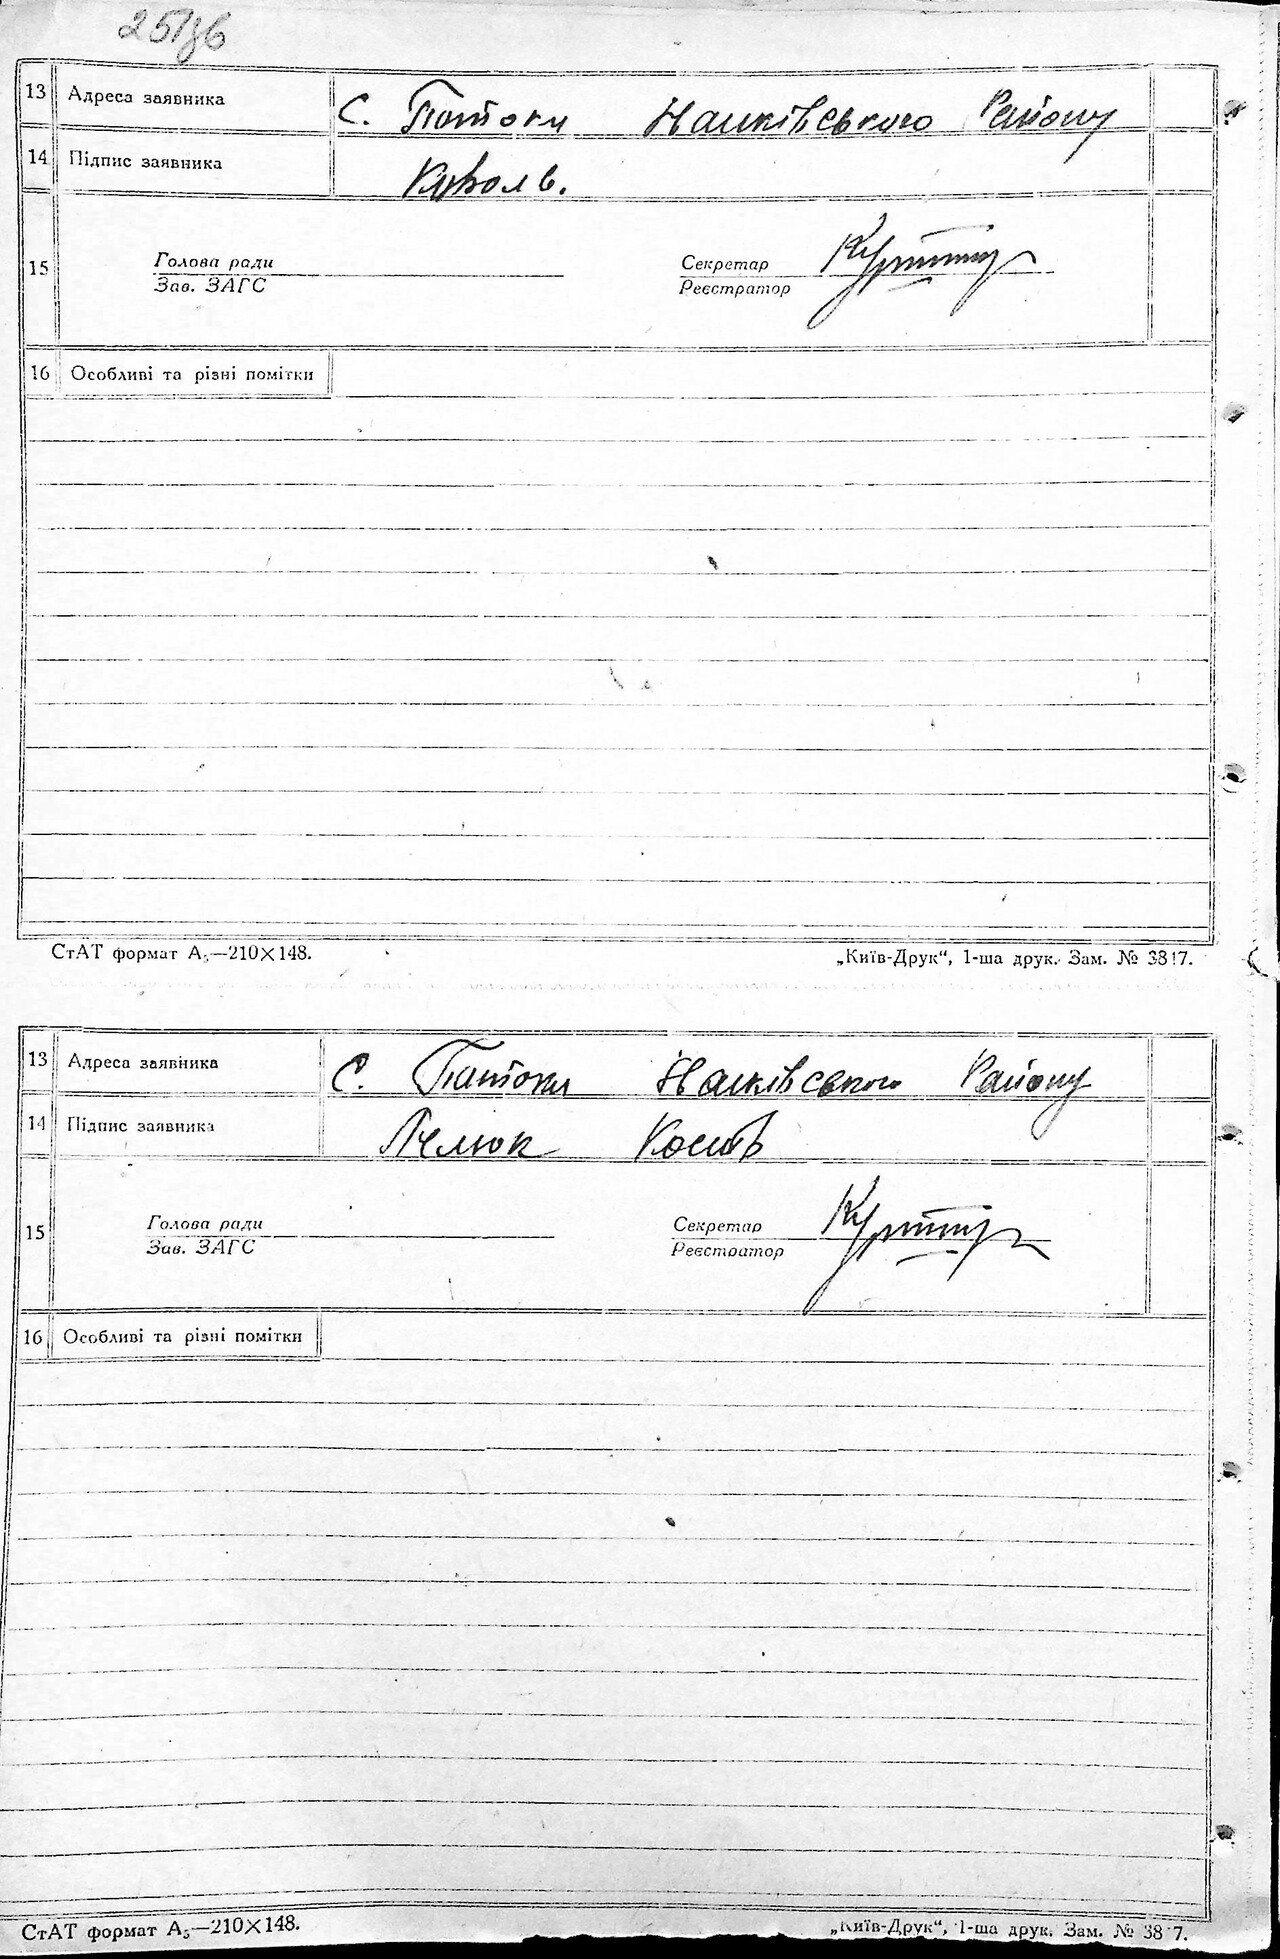 251зв
13 Адреса заявника С. Потоки Району
14 Підпис заявника Коваль.
15 Голова ради Секретар
Зав. ЗАГС Реєстратор
16 Особливі та різні помітки
СтАТ формат А₅—210×148. „Київ-Друк“, 1-ша друк. Зам. № 3817.
13 Адреса заявника С. Потоки Району
14 Підпис заявника
15 Голова ради Секретар
Зав. ЗАГС Реєстратор
16 Особливі та різні помітки
СтАТ формат А₅—210×148. „Київ-Друк“, 1-ша друк. Зам. № 38 7.